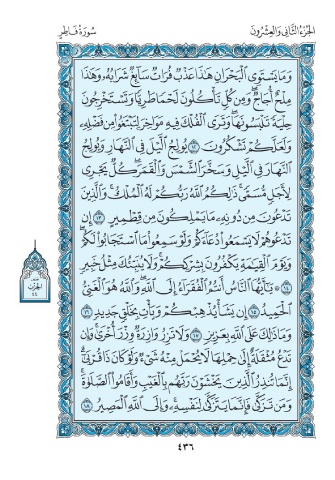 الجُزءُ الثَّانِي وَالعِشْرُونَ
سُورَةُ فَاطِرٍ
وَمَا يَسْتَوِى ٱلْبَحْرَانِ هَٰذَا عَذْبٌ فُرَاتٌ سَآئِغٌ شَرَابُهُۥ وَهَٰذَا
مِلْحٌ أُجَاجٌ ۖ وَمِن كُلٍّ تَأْكُلُونَ لَحْمًا طَرِيًّا وَتَسْتَخْرِجُونَ
حِلْيَةً تَلْبَسُونَهَا ۖ وَتَرَى ٱلْفُلْكَ فِيهِ مَوَاخِرَ لِتَبْتَغُوا۟ مِن فَضْلِهِۦ
وَلَعَلَّكُمْ تَشْكُرُونَ ١٢ يُولِجُ ٱلَّيْلَ فِى ٱلنَّهَارِ وَيُولِجُ
ٱلنَّهَارَ فِى ٱلَّيْلِ وَسَخَّرَ ٱلشَّمْسَ وَٱلْقَمَرَ ۖ كُلٌّ يَجْرِى
لِأَجَلٍ مُّسَمًّى ۚ ذَٰلِكُمُ ٱللَّهُ رَبُّكُمْ لَهُ ٱلْمُلْكُ ۚ وَٱلَّذِينَ
تَدْعُونَ مِن دُونِهِۦ مَا يَمْلِكُونَ مِن قِطْمِيرٍ ١٣ إِن
تَدْعُوهُمْ لَا يَسْمَعُوا۟ دُعَآءَكُمْ وَلَوْ سَمِعُوا۟ مَا ٱسْتَجَابُوا۟ لَكُمْ ۖ
وَيَوْمَ ٱلْقِيَٰمَةِ يَكْفُرُونَ بِشِرْكِكُمْ ۚ وَلَا يُنَبِّئُكَ مِثْلُ خَبِيرٍ
١٤ يَٰٓأَيُّهَا ٱلنَّاسُ أَنتُمُ ٱلْفُقَرَآءُ إِلَى ٱللَّهِ ۖ وَٱللَّهُ هُوَ ٱلْغَنِىُّ
ٱلْحَمِيدُ ١٥ إِن يَشَأْ يُذْهِبْكُمْ وَيَأْتِ بِخَلْقٍ جَدِيدٍ ١٦
وَمَا ذَٰلِكَ عَلَى ٱللَّهِ بِعَزِيزٍ ١٧ وَلَا تَزِرُ وَازِرَةٌ وِزْرَ أُخْرَىٰ ۚ وَإِن
تَدْعُ مُثْقَلَةٌ إِلَىٰ حِمْلِهَا لَا يُحْمَلْ مِنْهُ شَىْءٌ وَلَوْ كَانَ ذَا قُرْبَىٰٓ ۗ
إِنَّمَا تُنذِرُ ٱلَّذِينَ يَخْشَوْنَ رَبَّهُم بِٱلْغَيْبِ وَأَقَامُوا۟ ٱلصَّلَوٰةَ ۚ
وَمَن تَزَكَّىٰ فَإِنَّمَا يَتَزَكَّىٰ لِنَفْسِهِۦ ۚ وَإِلَى ٱللَّهِ ٱلْمَصِيرُ ١٨
الحزب
٤٤
٤٣٦